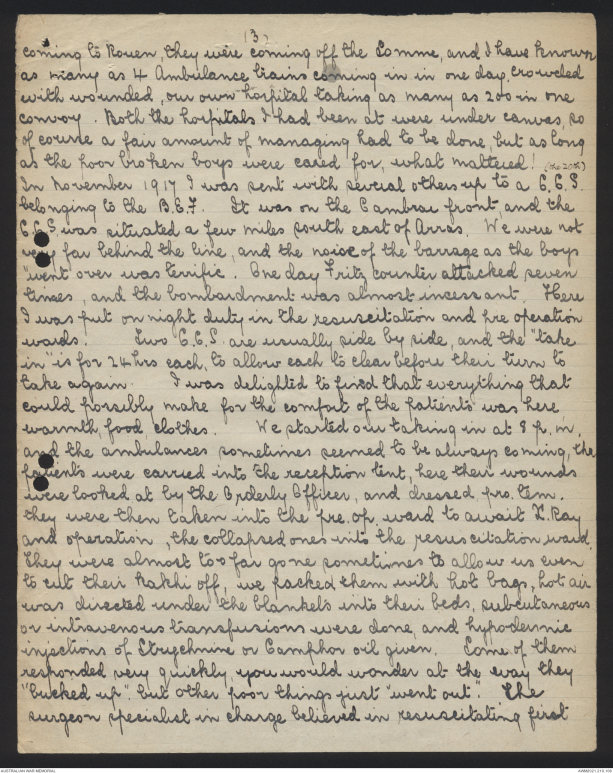 (3)
coming to Rouen, they were coming off the Somme, and I have known
as many as 4 Ambulance trains coming in in one day, crowded
with wounded, our own hospital taking as many as 200 in one
convoy. Both the hospitals I had been at were under canvas, so
of course a fair amount of managing had to be done, but as long
as the poor broken boys were cared for, what mattered!
In November 1917 I was sent with several others up to a C.C.S.
belonging to the B.E.F. It was on the Cambrai front, and the
C.C.S. was situated a few miles south east of Arras. We were not
very far behind the line, and the noise of the barrage as the boys
"went" over was terrific. One day Fritz counter attacked seven
times, and the bombardment was almost incessant. Here
I was put on night duty in the resuscitation and pre operation
wards. Two C.C.S. are usually side by side, and the "take
in" is for 24 hrs each, to allow each to clear before their turn to
take again. I was delighted to find that everything that
could possibly make for the comfort of the patients was here
warmth, food, clothes. We started our taking in at 8 p.m,
and the ambulances sometimes seemed to be always coming, the
patients were carried into the reception tent, here their wounds
were looked at by the Orderly Officer, and dressed pro. tem.
they were then taken into the pre. op. ward to await X. Ray
and operation, the collapsed ones into the resuscitation ward.
They were almost too far gone sometimes to allow us even
to cut their kakhi off, we packed them with hot bags, hot air
was directed under the blankets into their beds, subcutaneous
or intravenous transfusions were done, and hypodermic
injections of Strychnine or Camphor oil given. Some of them
responded very quickly, you would wonder at the way they
"bucked up", but other poor things just "went out". The
surgeon specialist in charge believed in resuscitating first
AUSTRALIAN WAR MEMORIAL